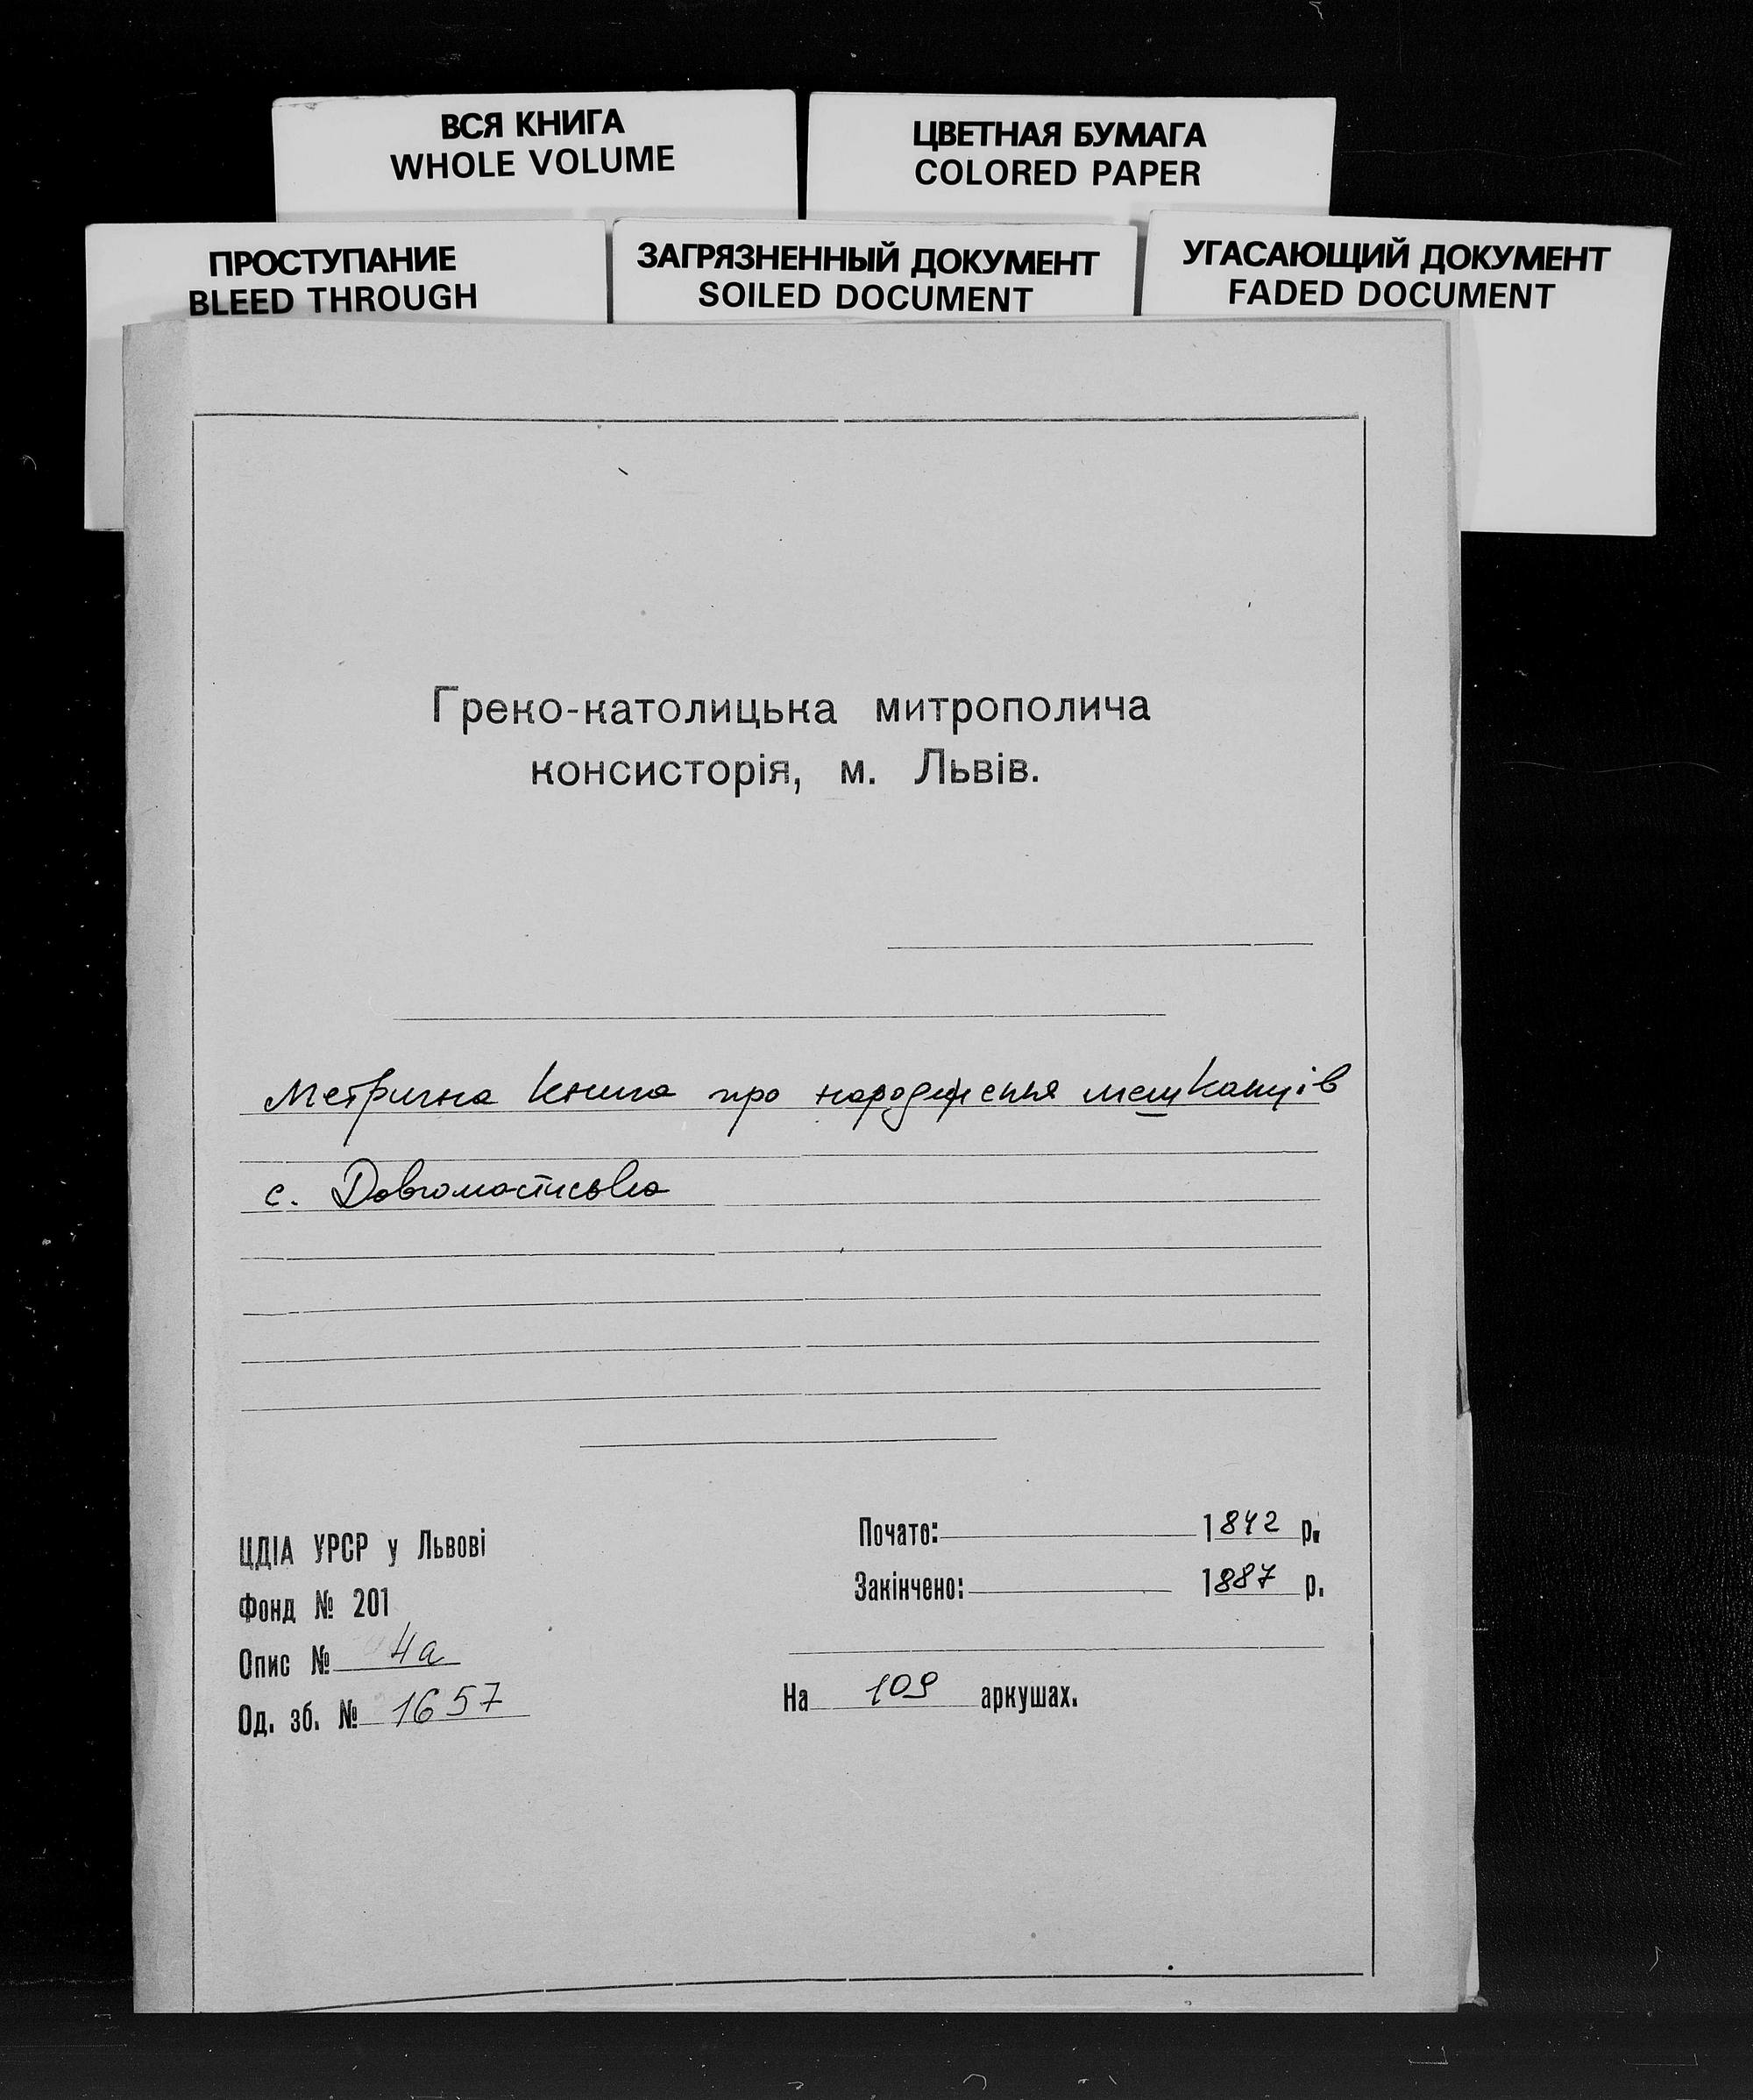 ВСЯ КНИГА
WHOLE VOLUME
ЦВЕТНАЯ БУМАГА
COLORED PAPER
ПРОСТУПАНИЕ
BLEED THROUGH
ЗАГРЯЗНЕННЫЙ ДОКУМЕНТ
SOILED DOCUMENT
УГАСАЮЩИЙ ДОКУМЕНТ
FADED DOCUMENT
Греко-католицька митрополича
консисторія, м. Львів.
Метрична книга про народження мешканців
с. Довгомостиська
ЦДІА УРСР у Львові
Фонд № 201
Опис № 4а
Од. зб. № 1657
Почато: 1842 р.
Закінчено: 1887 р.
На 109 аркушах.